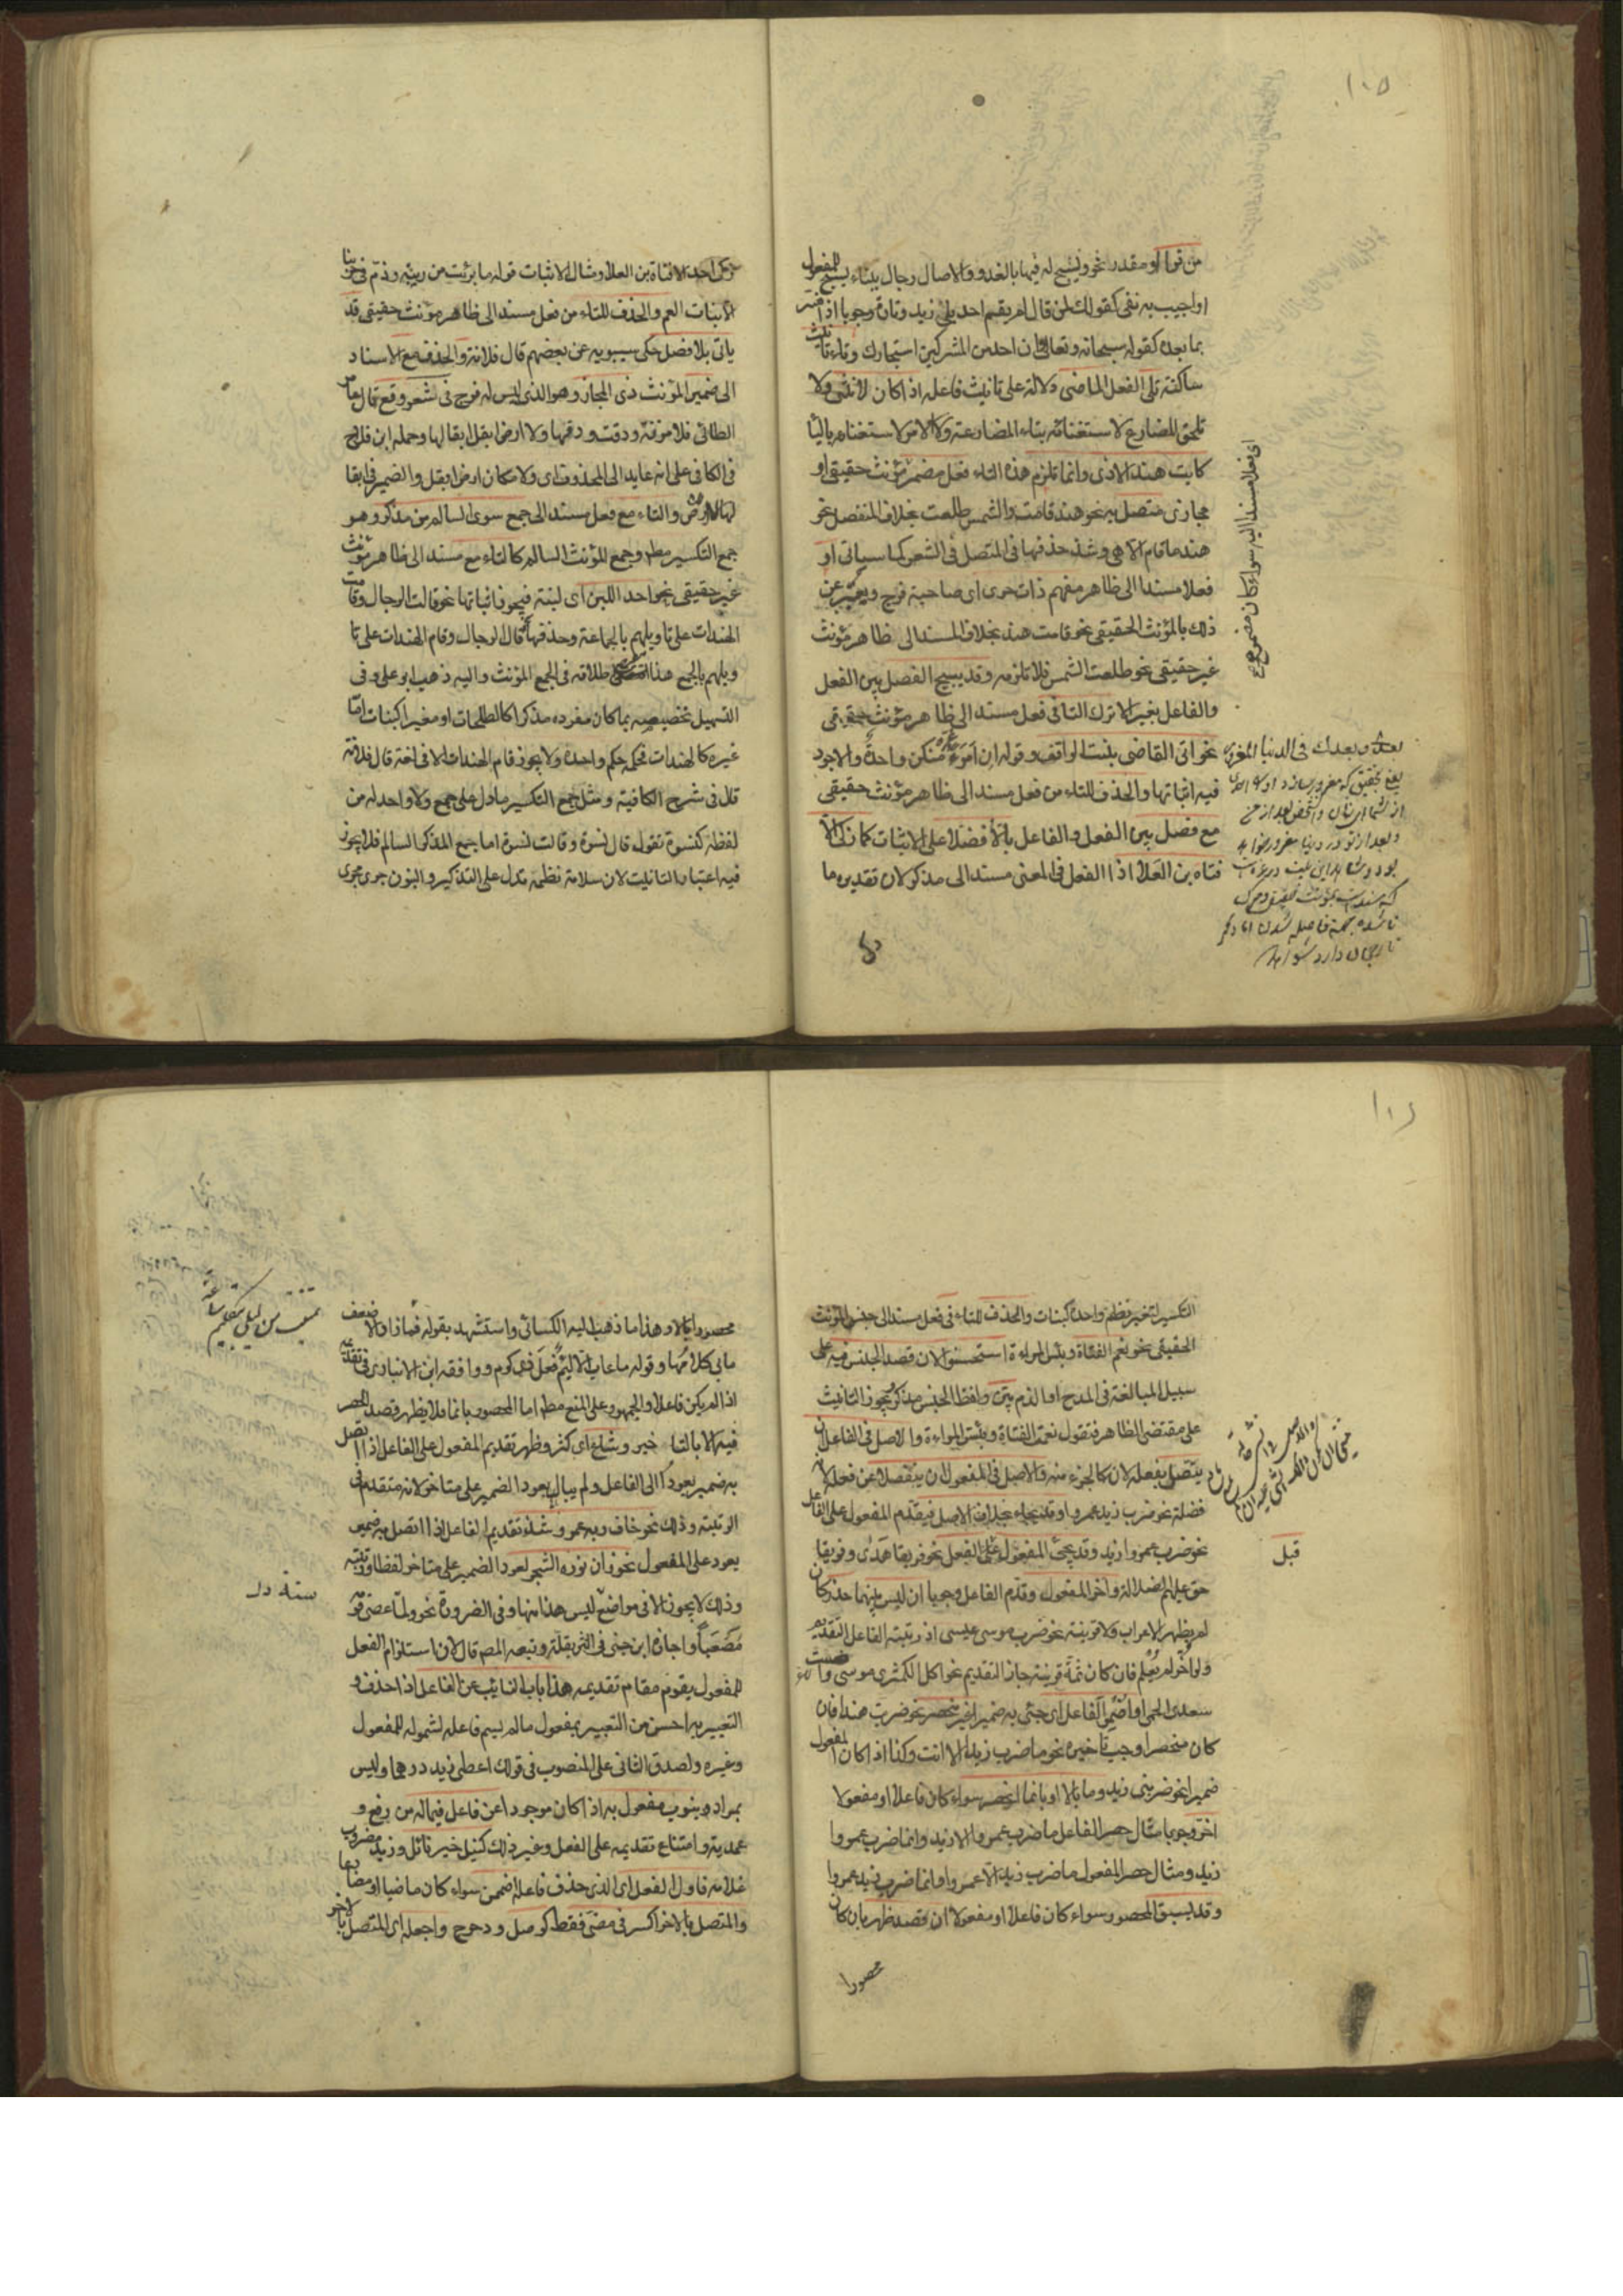 ١٠٥
من قرا او مقدر نحو يسبح له فيها بالغدو والاصال رجال ببناء يسبح للمفعول
او اجيب به نفى كقولك لمن قال لم يقم احد بلى زيد وتارة وجوبا اذا فسر
بما بعده كقوله سبحانه وتعالى وان احد من المشركين استجارك وتاء تانيث
ساكنة تلى الفعل الماضى دلالة على تانيث فاعله اذا كان لانثى ولا
تلحق المضارع لاستغنائه بتاء المضارعة ولا الامر لاستغنائه بالياء
كابت هند الاذى وانما تلزم هذه التاء فعل مضمر مؤنث حقيقى او
مجازى متصل به نحو هند قامت والشمس طلعت بخلاف المنفصل نحو
هند ما قام الا هى وشذ حذفها فى المتصل فى الشعر كما سياتى او
فعلا مسندا الى ظاهر مفهم ذات حرى اى صاحبة فرج ويعبر عن
ذلك بالمؤنث الحقيقى نحو قامت هند بخلاف المسند الى ظاهر مؤنث
غير حقيقى نحو طلعت الشمس فلا تلزمه وقد يبيح الفصل بين الفعل
والفاعل بغير الا ترك التاء فى فعل مسند الى ظاهر مؤنث حقيقى
نحو اتى القاضى بنت الواقف وقوله ان امرءا غره منكن واحدة والاجود
فيه اثباتها والحذف للتاء من فعل مسند الى ظاهر مؤنث حقيقى
مع فصل بين الفعل والفاعل بالا فضلا على الاثبات كما زكى الا
فتاة بن العلا اذا الفعل فى المعنى مسند الى مذكر لان تقديره ما
اى فعلا مسندا اليه سواء كان مضمر
بعدى وبعدك فى الدنيا لمغرور
زكى احد الا فتاة بن العلا ومثال الاثبات قوله ما برئت من ريبة وذم فى حربنا
الا بنات العم والحذف للتاء من فعل مسند الى ظاهر مؤنث حقيقى قد
ياتى بلا فصل حكى سيبويه عن بعضهم قال فلانة والحذف مع الاسناد
الى ضمير المؤنث ذى المجاز وهو الذى ليس له فرج فى شعر وقع قال عامر
الطائى فلا مزنة ودقت ودقها ولا ارض ابقل ابقالها وحمله ابن فلاح
فى الكافى على انه عايد الى المحذوف اى ولا مكان ارض ابقل والضمير فى ابقا
لها للارض والتاء مع فعل مسند الى جمع سوى السالم من مذكر وهو
جمع التكسير مطلقا وجمع المؤنث السالم كالتاء مع مسند الى ظاهر مؤنث
غير حقيقى نحو احد اللبن اى لبنة فيجوز اثباتها نحو قالت الرجال وقامت
الهندات على تاويلهم بالجماعة وحذفها نحو قال الرجال وقام الهندات على تا
ويلهم بالجمع هذا اطلاقه فى الجمع المؤنث واليه ذهب ابو على وفى
التسهيل تخصيصه بما كان مفرده مذكرا كالطلحات او مغيرا كبنات اما
غيره كالهندات فحكمه حكم واحده ولا يجوز قام الهندات الا فى لغة قال فلانة
قال فى شرح الكافية ومثل جمع التكسير ما دل على جمع ولا واحد له من
لفظه كنسوة تقول قال نسوة وقالت نسوة اما جمع المذكر السالم فلا يجوز
فيه اعتبار التانيث لان سلامة نظمه تدل على التذكير والبنون جرى مجرى
١٠٦
التكسير لتغير نظم واحده كبنات والحذف للتاء فى فعل مسند الى جنس المؤنث
الحقيقى نحو نعم الفتاة وبئس المراءة استحسنوا لان قصد الجنس فيه على
سبيل المبالغة فى المدح او الذم بين ولفظ الجنس مذكر ويجوز التانيث
على مقتضى الظاهر فتقول نعمت الفتاة وبئست المراءة والاصل فى الفاعل ان
يتصل بفعله لانه كالجزء منه والاصل فى المفعول ان ينفصلا عن فعله لانه
فضلة نحو ضرب زيد عمروا وقد يجاء بخلاف الاصل فيقدم المفعول على الفاعل
نحو ضرب عمروا زيد وقد يجئ المفعول قبل الفعل نحو فريقا هدى وفريقا
حق عليهم الضلالة واخر المفعول وقدم الفاعل وجوبا ان لبس بينهما حذر كان
لم يظهر الاعراب ولا قرينة نحو ضرب موسى عيسى اذ رتبة الفاعل التقديم
ولو اخر لم يعلم فان كان ثمة قرينة جاز التقديم نحو اكل الكمثرى موسى واضنت
سعدى الحمى او اضمر الفاعل اى جئ به ضميرا غير منحصر نحو ضربت هندا فان
كان منحصرا وجب تاخيره نحو ما ضرب زيدا الا انت وكذا اذا كان المفعول
ضميرا نحو ضربنى زيد وما بالا او بانما انحصر سواء كان فاعلا او مفعولا
اخر وجوبا مثال حصر الفاعل ما ضرب عمروا الا زيد وانما ضرب عمروا
زيد ومثال حصر المفعول ما ضرب زيد الا عمروا وانما ضرب زيد عمروا
وقد يسبق المحصور سواء كان فاعلا او مفعولا ان قصد ظهر بان كان
محصورا
قبل
محصورا بالا وهذا ما ذهب اليه الكسائى واستشهد بقوله فما زاد الا ضعف
مابى كلامها وقوله ما عاب الا لئيم فعل ذى كرم ووافقه ابن الانبارى فى تقديمه
اذا لم يكن فاعلا والجمهور على المنع مطلقا اما المحصور بانما فلا يظهر قصد الحصر
فيه الا بالتاخير وشاع اى كثر وظهر تقديم المفعول على الفاعل اذا اتصل
به ضمير يعود الى الفاعل ولم يبال بعود الضمير على متاخر لانه متقدم فى
الرتبة وذلك نحو خاف ربه عمر وشذ تقديم الفاعل اذا اتصل به ضمير
يعود على المفعول نحو زان نوره الشجر لعود الضمير على متاخر لفظا ورتبة
وذلك لا يجوز الا فى مواضع ليس هذا منها وفى الضرورة نحو ولما عصى قومه
مصعبا واجازه ابن جنى فى النثر بقلة وتبعه المصم قال لان استلزام الفعل
للمفعول يقوم مقام تقديمه هذا باب النائب عن الفاعل اذا حذف و
التعبير به احسن من التعبير بمفعول مالم يسم فاعله لشموله للمفعول
وغيره ولصدق الثانى على المنصوب فى قولك اعطى زيد درهما وليس
بمراد وينوب مفعول به اذا كان موجودا عن فاعل فيما له من رفع و
عمدية وامتناع تقديمه على الفعل وغير ذلك كنيل خير نائل وزيد مضروب
غلامه فاول الفعل اى الذى حذف فاعله اضمن سواء كان ماضيا او مضارعا
والمتصل بالاخر اكسر فى مضى فقط كوصل ودحرج واجعله اى المتصل بالاخر